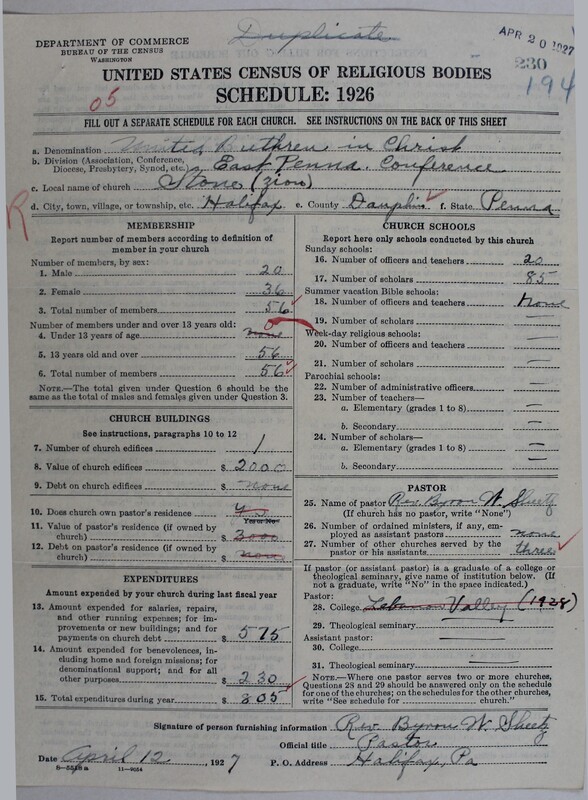 Duplicate
APR 20 1927
DEPARTMENT OF COMMERCE
BUREAU OF THE CENSUS
WASHINGTON
230
194
UNITED STATES CENSUS OF RELIGIOUS BODIES
05
SCHEDULE: 1926
FILL OUT A SEPARATE SCHEDULE FOR EACH CHURCH. SEE INSTRUCTIONS ON THE BACK OF THIS SHEET
a. Denomination United Brethren in Christ
b. Division (Association, Conference, Diocese, Presbytery, Synod, etc.) East Penna. Conference
c. Local name of church Stone (Zion)
R
d. City, town, village, or township, etc. Halifax e. County Dauphin f. State. Penna
MEMBERSHIP
Report number of members according to definition of member in your church
Number of members, by sex:
1. Male 20
2. Female 36
3. Total number of members 56
Number of members under and over 13 years old:
4. Under 13 years of age none 0
5. 13 years old and over 56
6. Total number of members 56
NOTE.—The total given under Question 6 should be
same as the total of males and females given under Question 3.
CHURCH BUILDINGS
See instructions, paragraphs 10 to 12
7. Number of church edifices 1
8. Value of church edifices $ 2000
9. Debt on church edifices $ none
10. Does church own pastor's residence? yes
Yes or No
11. Value of pastor's residence (if owned by
church) $ 3000
12. Debt on pastor's residence (if owned by
church) $ none
EXPENDITURES
Amount expended by your church during last fiscal year
13. Amount expended for salaries, repairs,
and other running expenses; for im-
provements or new buildings; and for
payments on church debt $ 575
14. Amount expended for benevolences,
including home and foreign missions; for
denominational support; and for all
other purposes $ 230
15. Total expenditures during year $ 805
CHURCH SCHOOLS
Report here only schools conducted by this church
Sunday schools:
16. Number of officers and teachers 20
17. Number of scholars 85
Summer vacation Bible schools:
18. Number of officers and teachers None
19. Number of scholars —
Week-day religious schools:
20. Number of officers and teachers —
21. Number of scholars —
Parochial schools:
22. Number of administrative officers —
23. Number of teachers—
a. Elementary (grades 1 to 8) —
b. Secondary —
24. Number of scholars—
a. Elementary (grades 1 to 8) —
b. Secondary —
PASTOR
25. Name of pastor Rev. Byron W. Sheetz
(If church has no pastor, write "None")
26. Number of ordained ministers, if any, em-
ployed as assistant pastors none
27. Number of other churches served by the
pastor or his assistants three
If pastor (or assistant pastor) is a graduate of a college or
theological seminary, give name of institution below. (If
not a graduate, write "No" in the space indicated.)
Pastor:
28. College Lebanon Valley (1928)
29. Theological seminary —
Assistant pastor:
30. College —
31. Theological seminary —
NOTE.—Where one pastor serves two or more churches,
Questions 28 and 29 should be answered only on the schedule
for one of the churches; on the schedules for the other churches,
write "See schedule for church."
Signature of person furnishing information Rev. Byron W. Sheetz
Official title Pastor
Date April 12, 1927 P. O. Address Halifax, Pa
8-5518a 11-9054